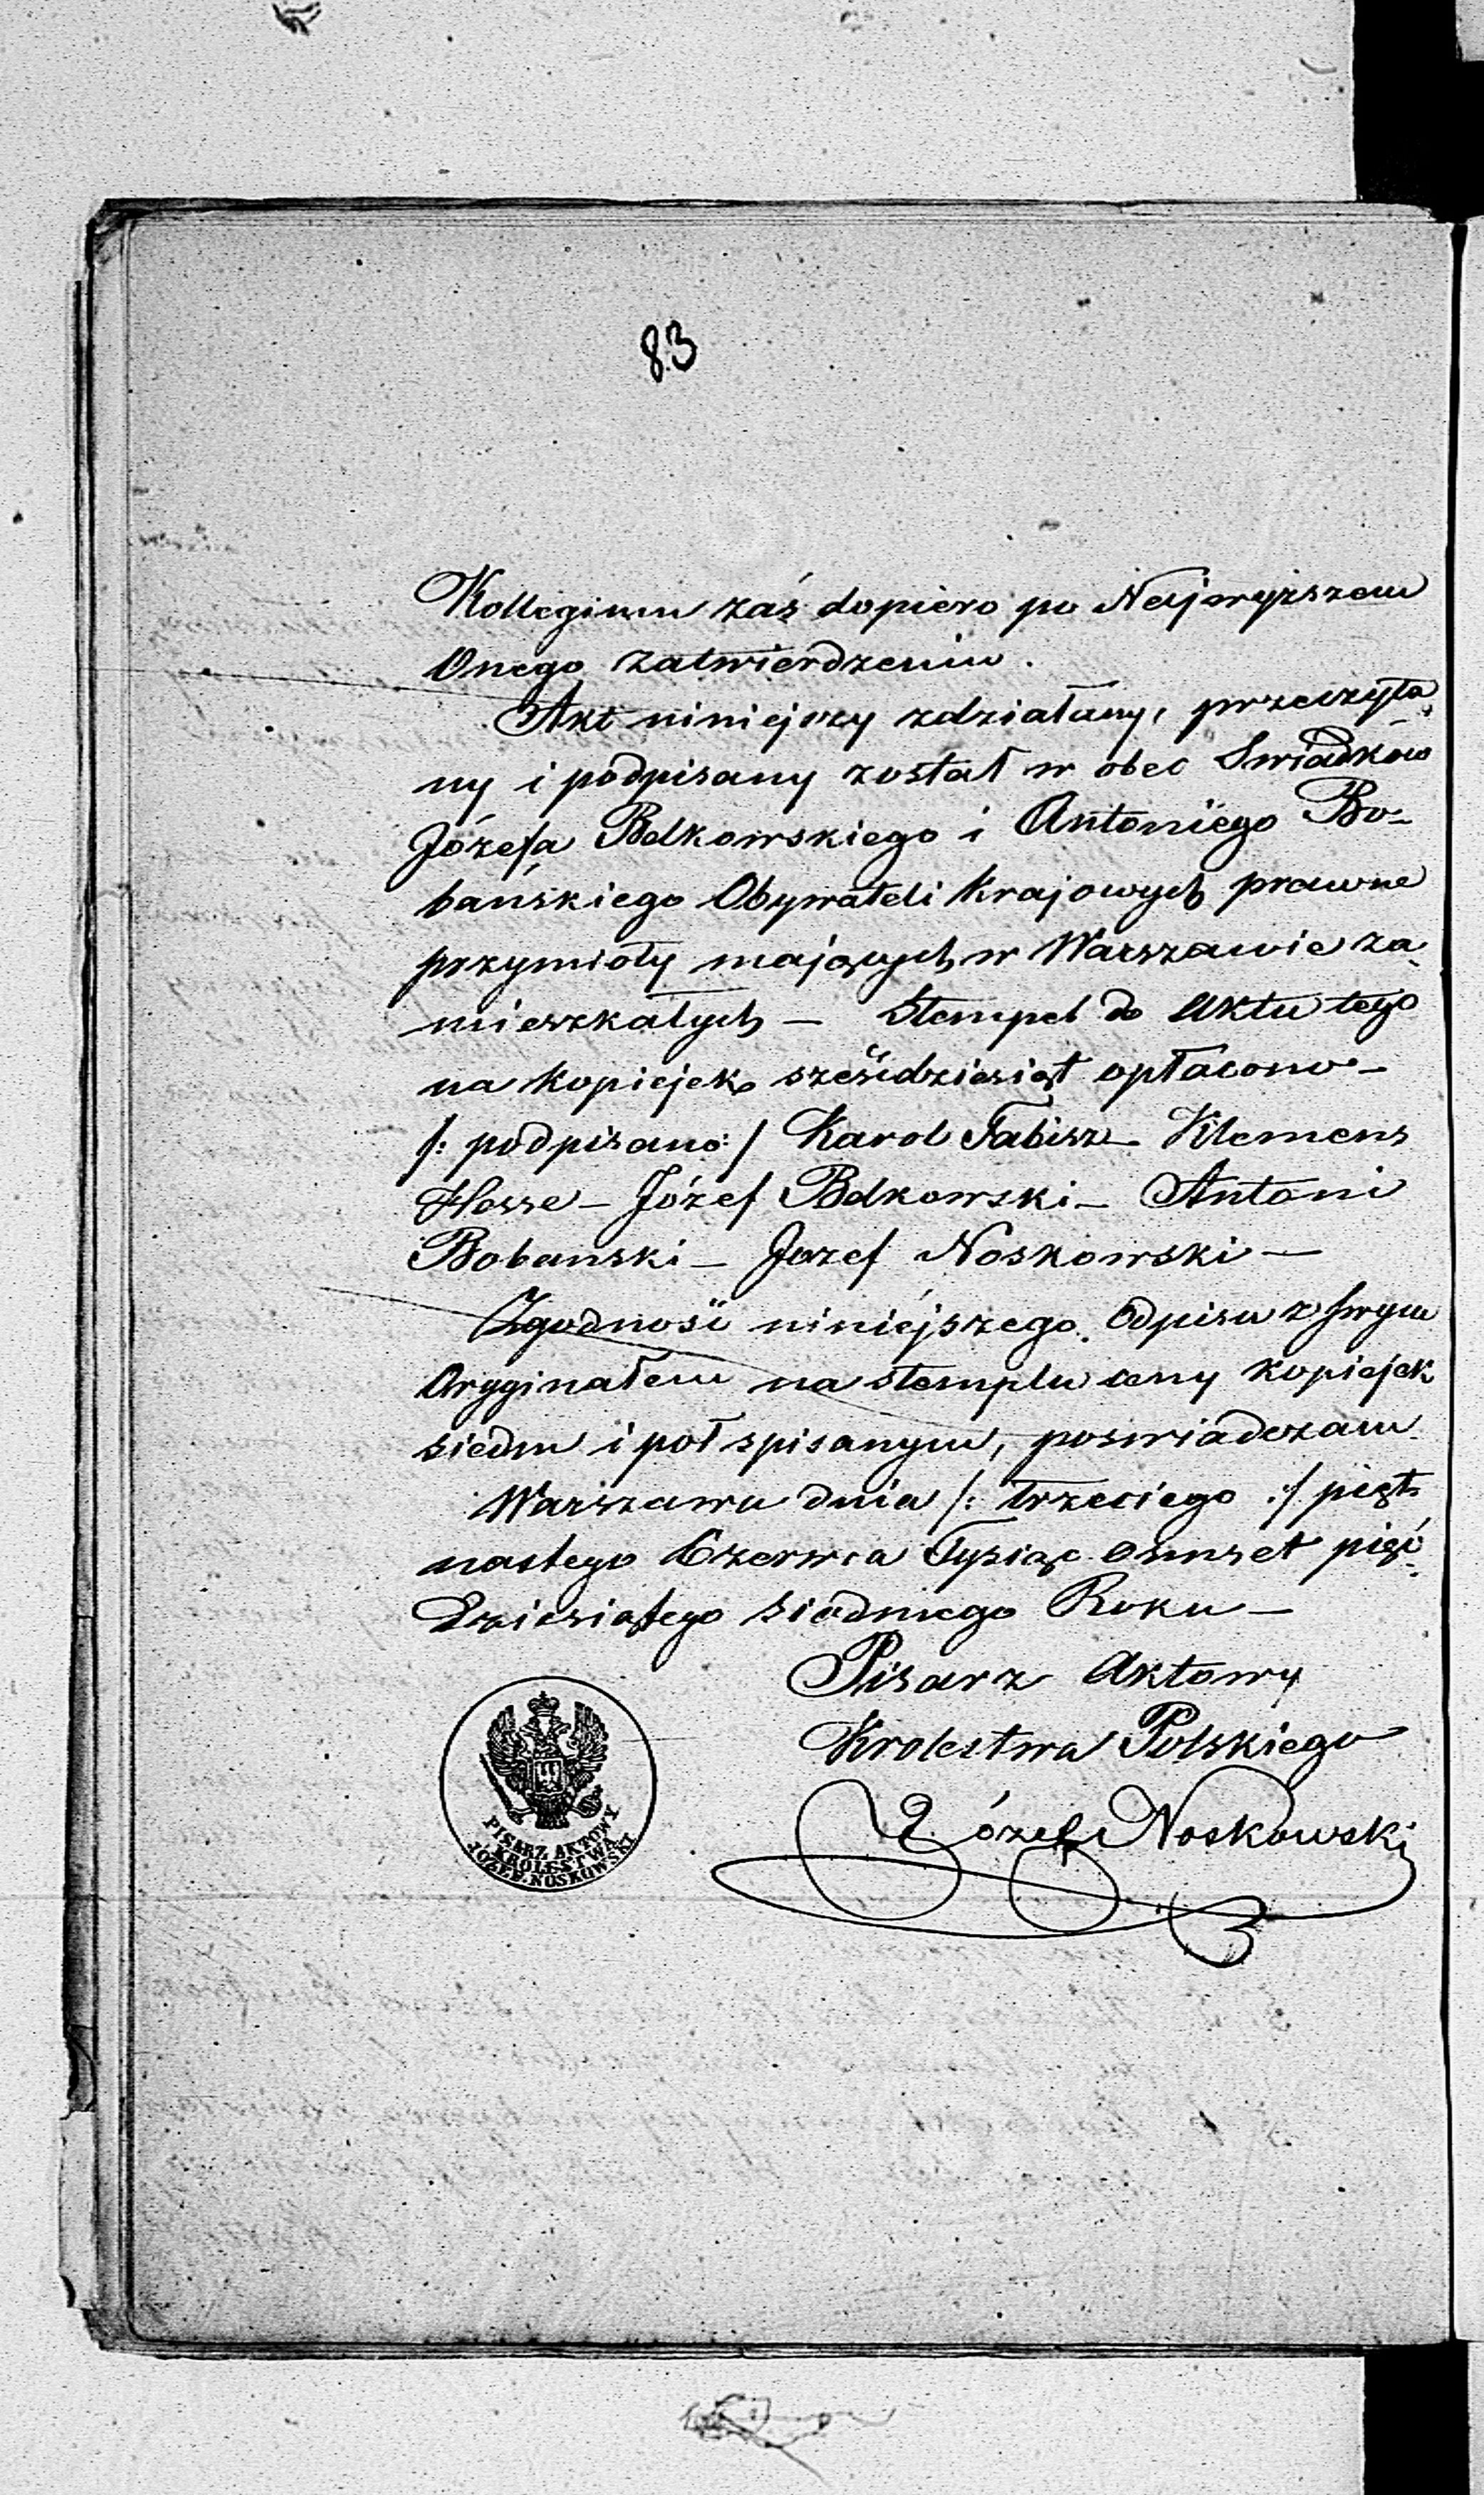 83
Kollegium zaś dopiero po Najwyższem
Onego zatwierdzeniu.
Akt niniejszy zdziałany, przeczyta-
ny i podpisany został w obec Swiadków
Józefa Belkowskiego i Antoniego Bo-
bańskiego Obywateli Krajowych prawne
przymioty mających w Warszawie za-
mieszkałych — Stempel do Aktu tego
na kopiejek sześćdziesiąt opłacono —
/: podpisano :/ Karol Fabisz — Klemens
Hosse — Józef Belkowski — Antoni
Bobanski — Jozef Noskowski —
Zgodność niniejszego Odpisu z swym
Oryginałem na stemplu ceny kopiejek
siedm i pół spisanym, poswiadczam
Warszawa dnia /: trzeciego :/ pięt-
nastego Czerwca Tysiąc osmset pięć-
dziesiątego siódmego Roku —
Pisarz Aktowy
Krolestwa Polskiego
Józef Noskowski
PISARZ AKTOWY
KROLESTWA
JÓZEF NOSKOWSKI